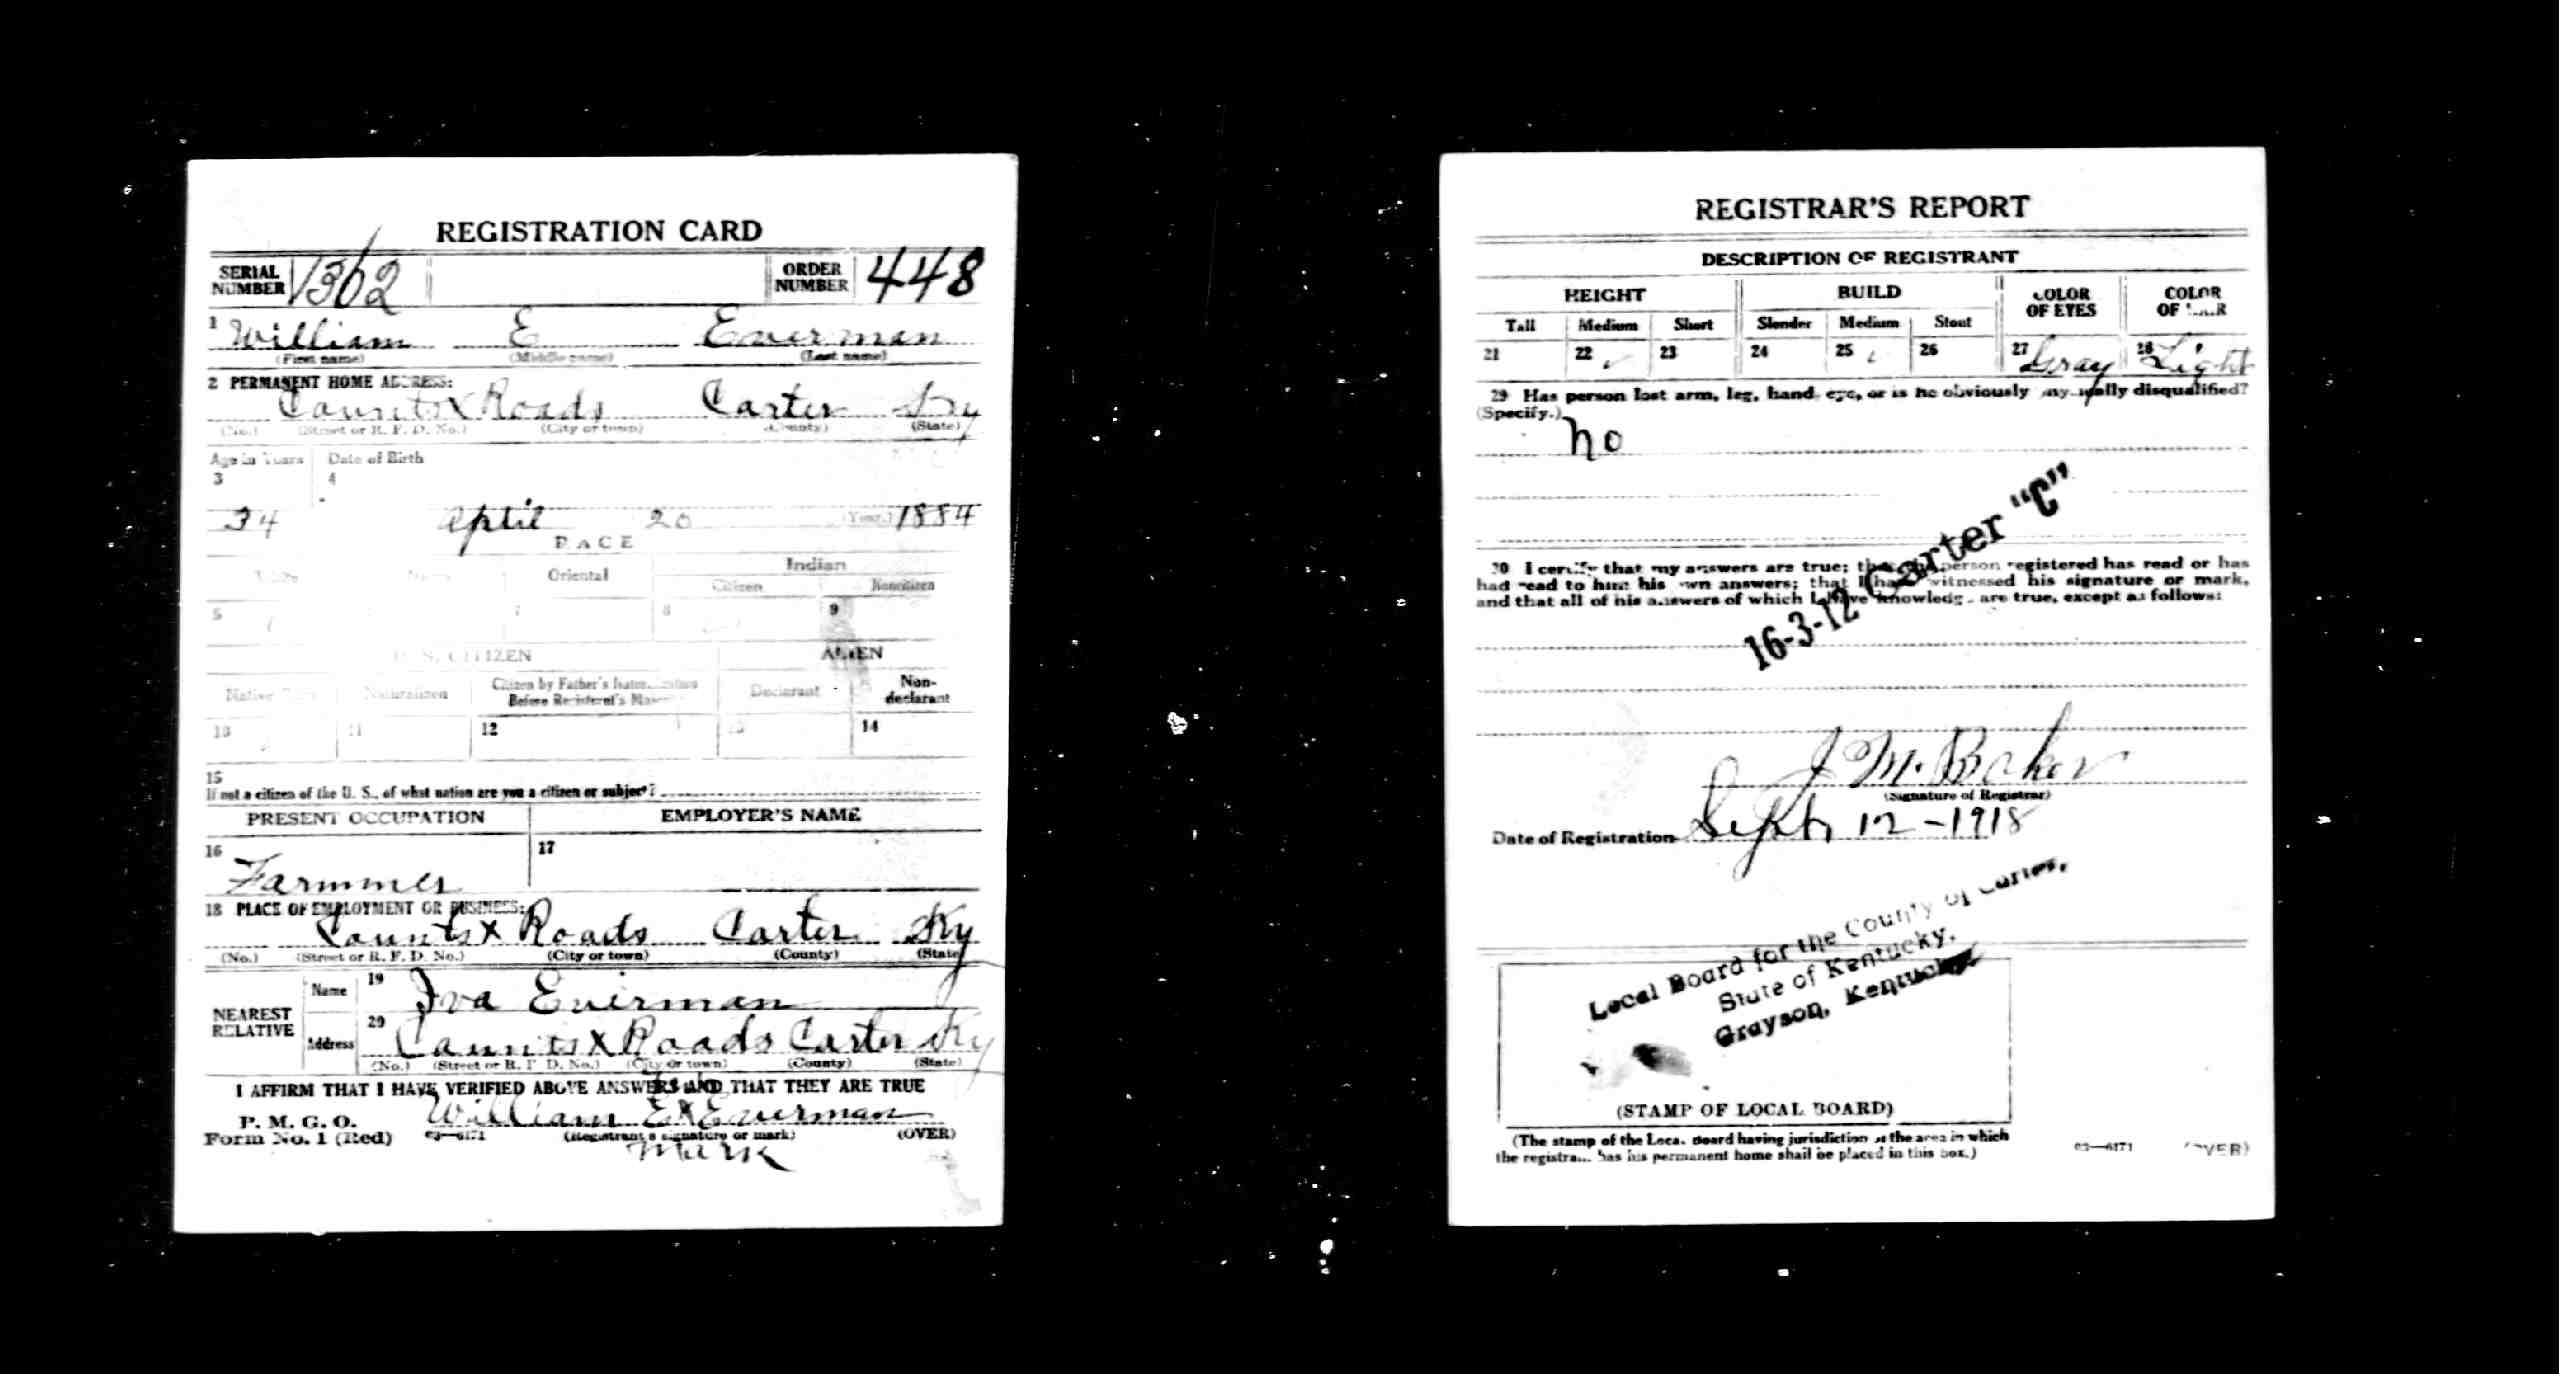 REGISTRATION CARD
SERIAL NUMBER 1362 ORDER NUMBER 448
1 William E Everman
(First name) (Middle name) (Last name)
2 PERMANENT HOME ADDRESS:
Counts X Roads Carter Ky
(No.) (Street or R. F. D. No.) (City or town) (County) (State)
Age in Years Date of Birth
3 4
34 April 20 (Year.) 1884
RACE
White Oriental Indian
Citizen Noncitizen
5 7 8 9
U. S. CITIZEN ALIEN
Native Naturalized Citizen by Father's Naturalization Before Registrant's Declarant Non-declarant
10 11 12 13 14
15
If not a citizen of the U. S., of what nation are you a citizen or subject?
PRESENT OCCUPATION EMPLOYER'S NAME
16 17
Farmmer
18 PLACE OF EMPLOYMENT OR BUSINESS:
Counts X Roads Carter Ky
(No.) (Street or R. F. D. No.) (City or town) (County) (State)
NEAREST RELATIVE
Name 19 Iva Everman
Address 20 Counts X Roads Carter Ky
(No.) (Street or R. F. D. No.) (City or town) (County) (State)
I AFFIRM THAT I HAVE VERIFIED ABOVE ANSWERS AND THAT THEY ARE TRUE
P. M. G. O.
Form No. 1 (Red) 03—6171
William E X Everman
(Registrant's signature or mark) (OVER)
Mark
REGISTRAR'S REPORT
DESCRIPTION OF REGISTRANT
HEIGHT BUILD COLOR OF EYES COLOR OF HAIR
Tall Medium Short Slender Medium Stout
21 22 ✓ 23 24 25 26 27 Gray 28 Light
29 Has person lost arm, leg, hand, eye, or is he obviously physically disqualified?
(Specify.)
no
30 I certify that my answers are true; that the person registered has read or has
had read to him his own answers; that I have witnessed his signature or mark,
and that all of his answers of which I have knowledge are true, except as follows:
16-3-12 Carter "C"
J M. Baker
(Signature of Registrar)
Date of Registration Sept. 12 - 1918
Local Board for the County of Carter,
State of Kentucky,
Grayson, Kentucky
(STAMP OF LOCAL BOARD)
(The stamp of the Local Board having jurisdiction of the area in which
the registrant has his permanent home shall be placed in this box.)
03—6171 (OVER)